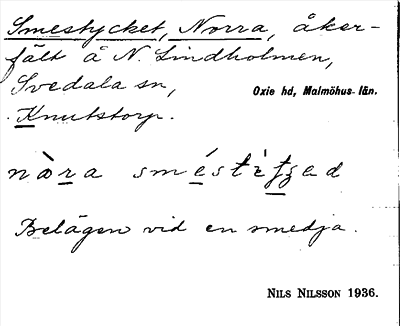 Smestycket, Norra, åker-
fält å N. Lindholmen,
Svedala sn,
Oxie hd, Malmöhus län.
Knutstorp.
Belägen vid en smedja.
NILS NILSSON 1936.